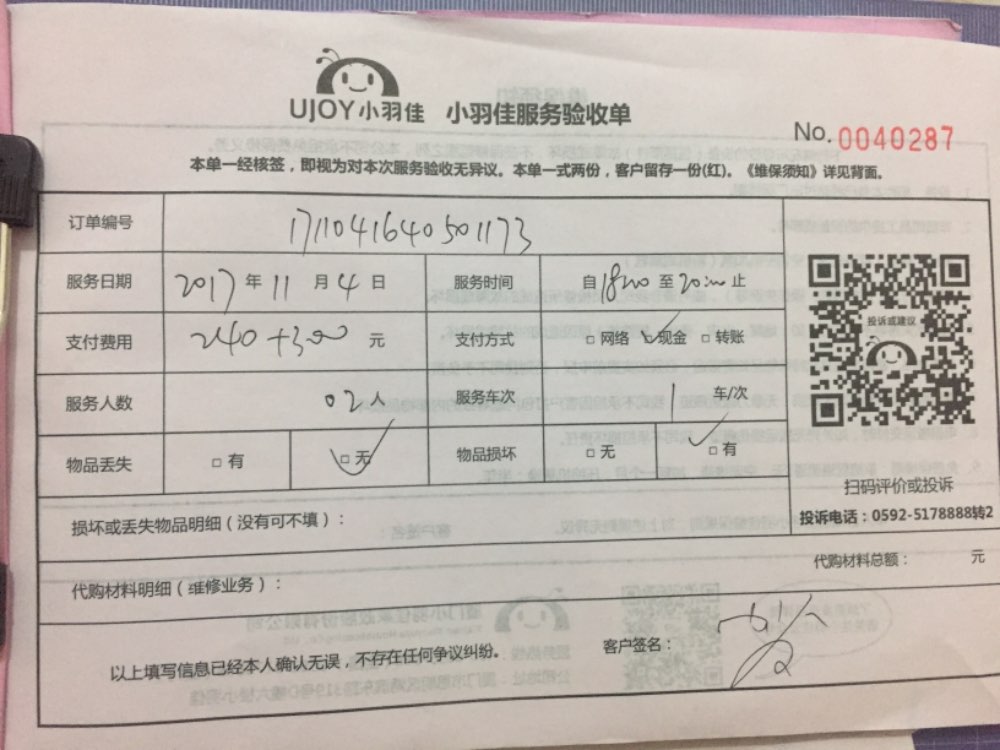 UJOY小羽佳 小羽佳服务验收单
No. 0040287
本单一经核签，即视为对本次服务验收无异议。本单一式两份，客户留存一份(红)。《维保须知》详见背面。
订单编号 1711041640501173
服务日期 2017 年 11 月 4 日 服务时间 自 18:00 至 20:00 止
支付费用 240+300 元 支付方式 □ 网络 ☑ 现金 □ 转账
服务人数 02 人 服务车次 1 车/次
物品丢失 □ 有 ☑ 无 物品损坏 □ 无 ☑ 有
投诉或建议
扫码评价或投诉
投诉电话：0592-5178888转2
损坏或丢失物品明细（没有可不填）：
代购材料明细（维修业务）： 代购材料总额： 元
以上填写信息已经本人确认无误，不存在任何争议纠纷。 客户签名：